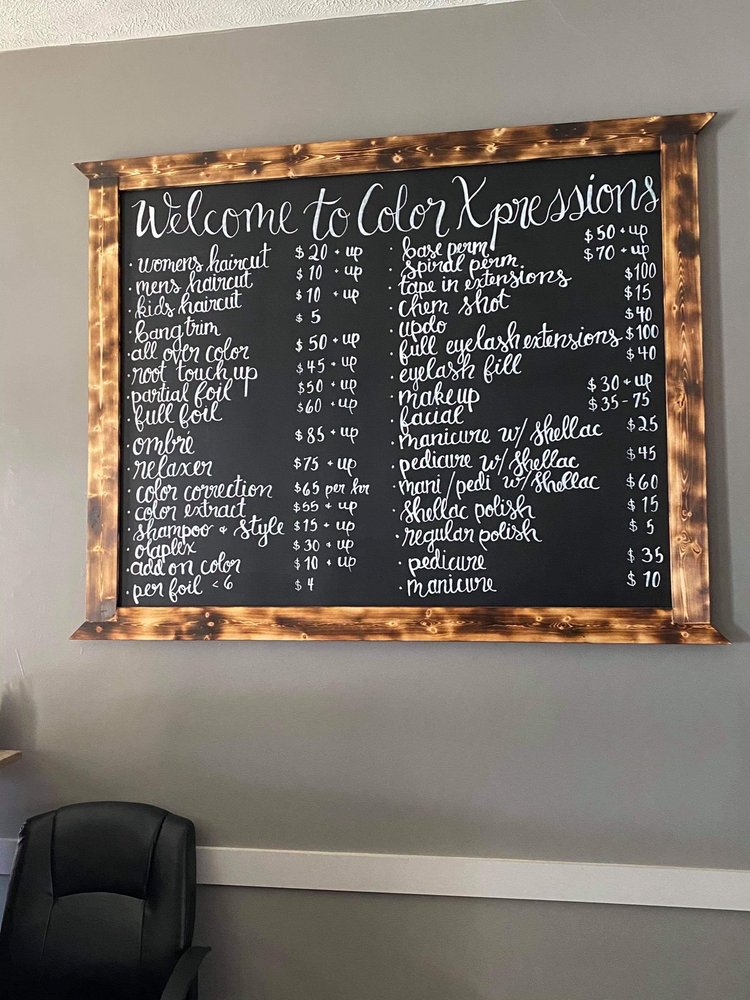 Welcome to Color Xpressions
· womens haircut $20 + up
· mens haircut $10 + up
· kids haircut $10 + up
· bang trim $5
· all over color $50 + up
· root touch up $45 + up
· partial foil $50 + up
· full foil $60 + up
· ombré $85 + up
· relaxer $75 + up
· color correction $65 per hr
· color extract $55 + up
· shampoo + style $15 + up
· olaplex $30 + up
· add on color $10 + up
· per foil <6 $4
· base perm $50 + up
· spiral perm $70 + up
· tape in extensions $100
· chem shot $15
· updo $40
· full eyelash extensions $100
· eyelash fill $40
· makeup $30 + up
· facial $35-75
· manicure w/ shellac $25
· pedicure w/ shellac $45
· mani/pedi w/ shellac $60
· shellac polish $15
· regular polish $5
· pedicure $35
· manicure $10